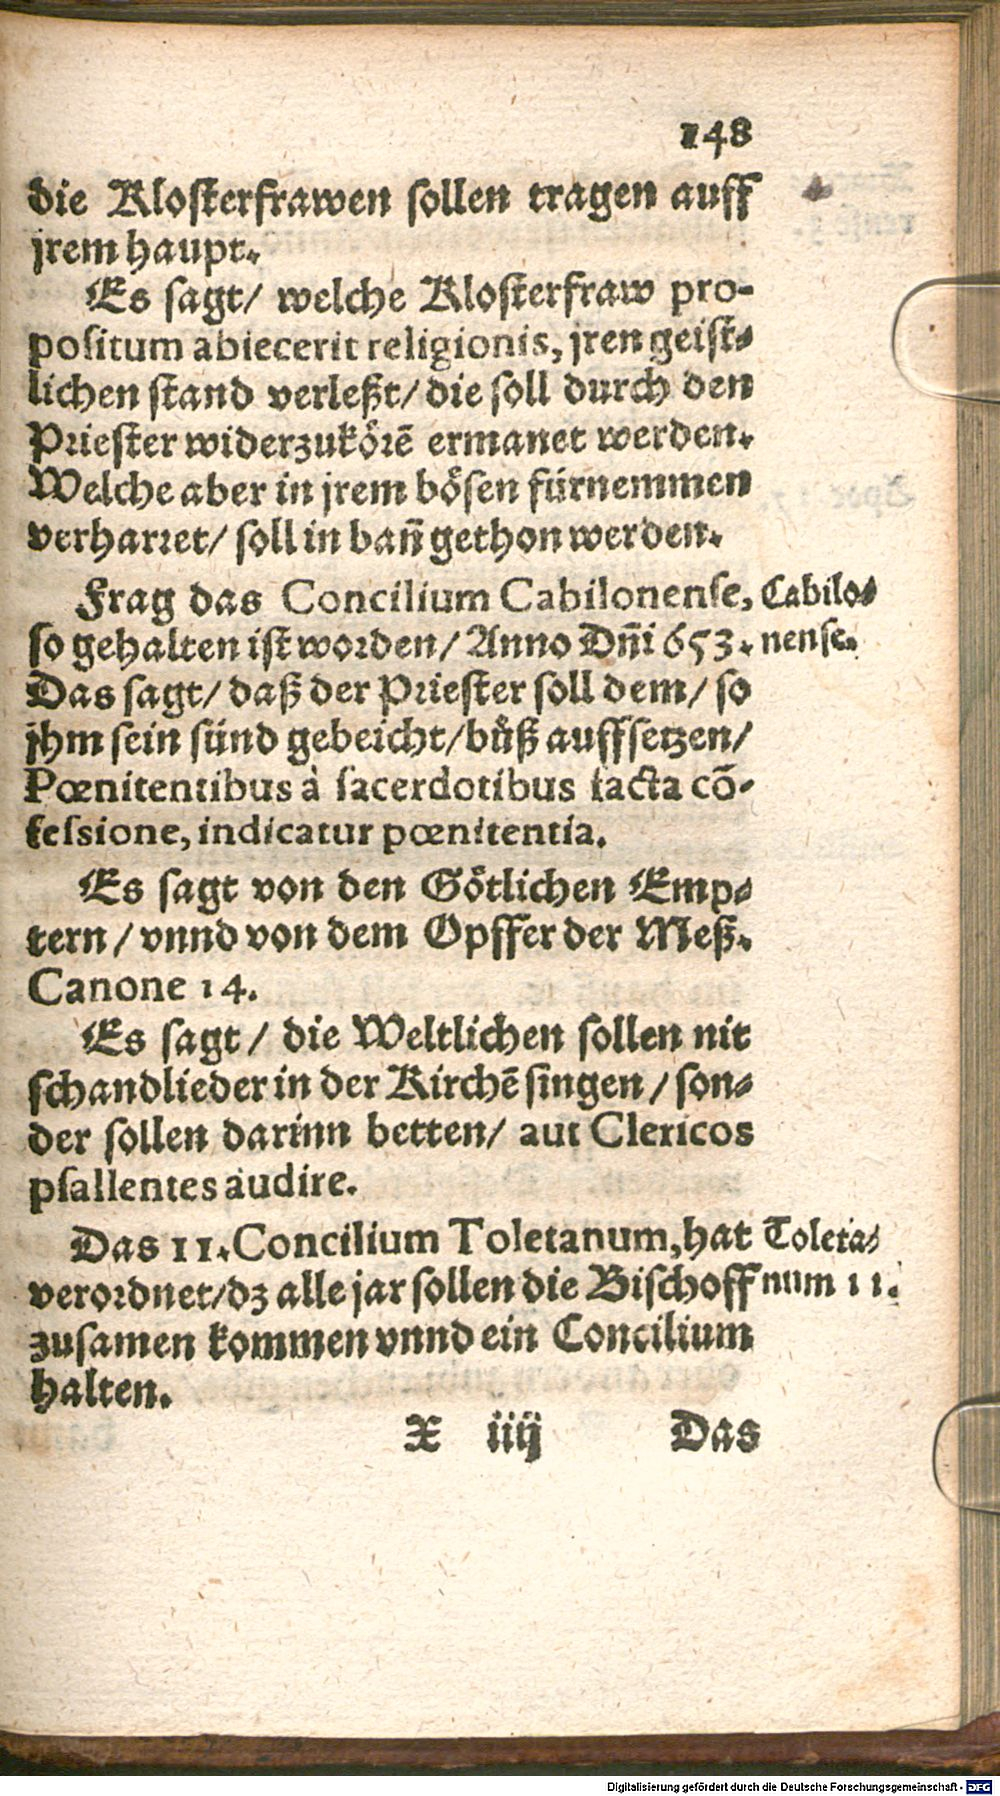 148
die Klosterfrawen sollen tragen auff
jrem haupt.
Es sagt/ welche Klosterfraw pro-
positum abiecerit religionis, jren geist-
lichen stand verleßt/ die soll durch den
Priester widerzukörē ermanet werden.
Welche aber in jrem bösen fürnemmen
verharret/ soll in bañ gethon werden.
Frag das Concilium Cabilonense,
so gehalten ist worden/ Anno Dñi 653.
Cabilo-
nense.
Das sagt/ daß der Priester soll dem/ so
jhm sein sünd gebeicht/ bůß auffsetzen/
Pœnitentibus à sacerdotibus facta cō-
fessione, indicatur pœnitentia.
Es sagt von den Götlichen Emp-
tern/ vnnd von dem Opffer der Meß.
Canone 14.
Es sagt/ die Weltlichen sollen nit
schandlieder in der Kirchē singen/ son-
der sollen darinn betten/ aut Clericos
psallentes audire.
Das 11. Concilium Toletanum, hat
verordnet/ dz alle jar sollen die Bischoff
Toleta-
num 11.
zusamen kommen vnnd ein Concilium
halten.
X iiij Das
Digitalisierung gefördert durch die Deutsche Forschungsgemeinschaft - DFG